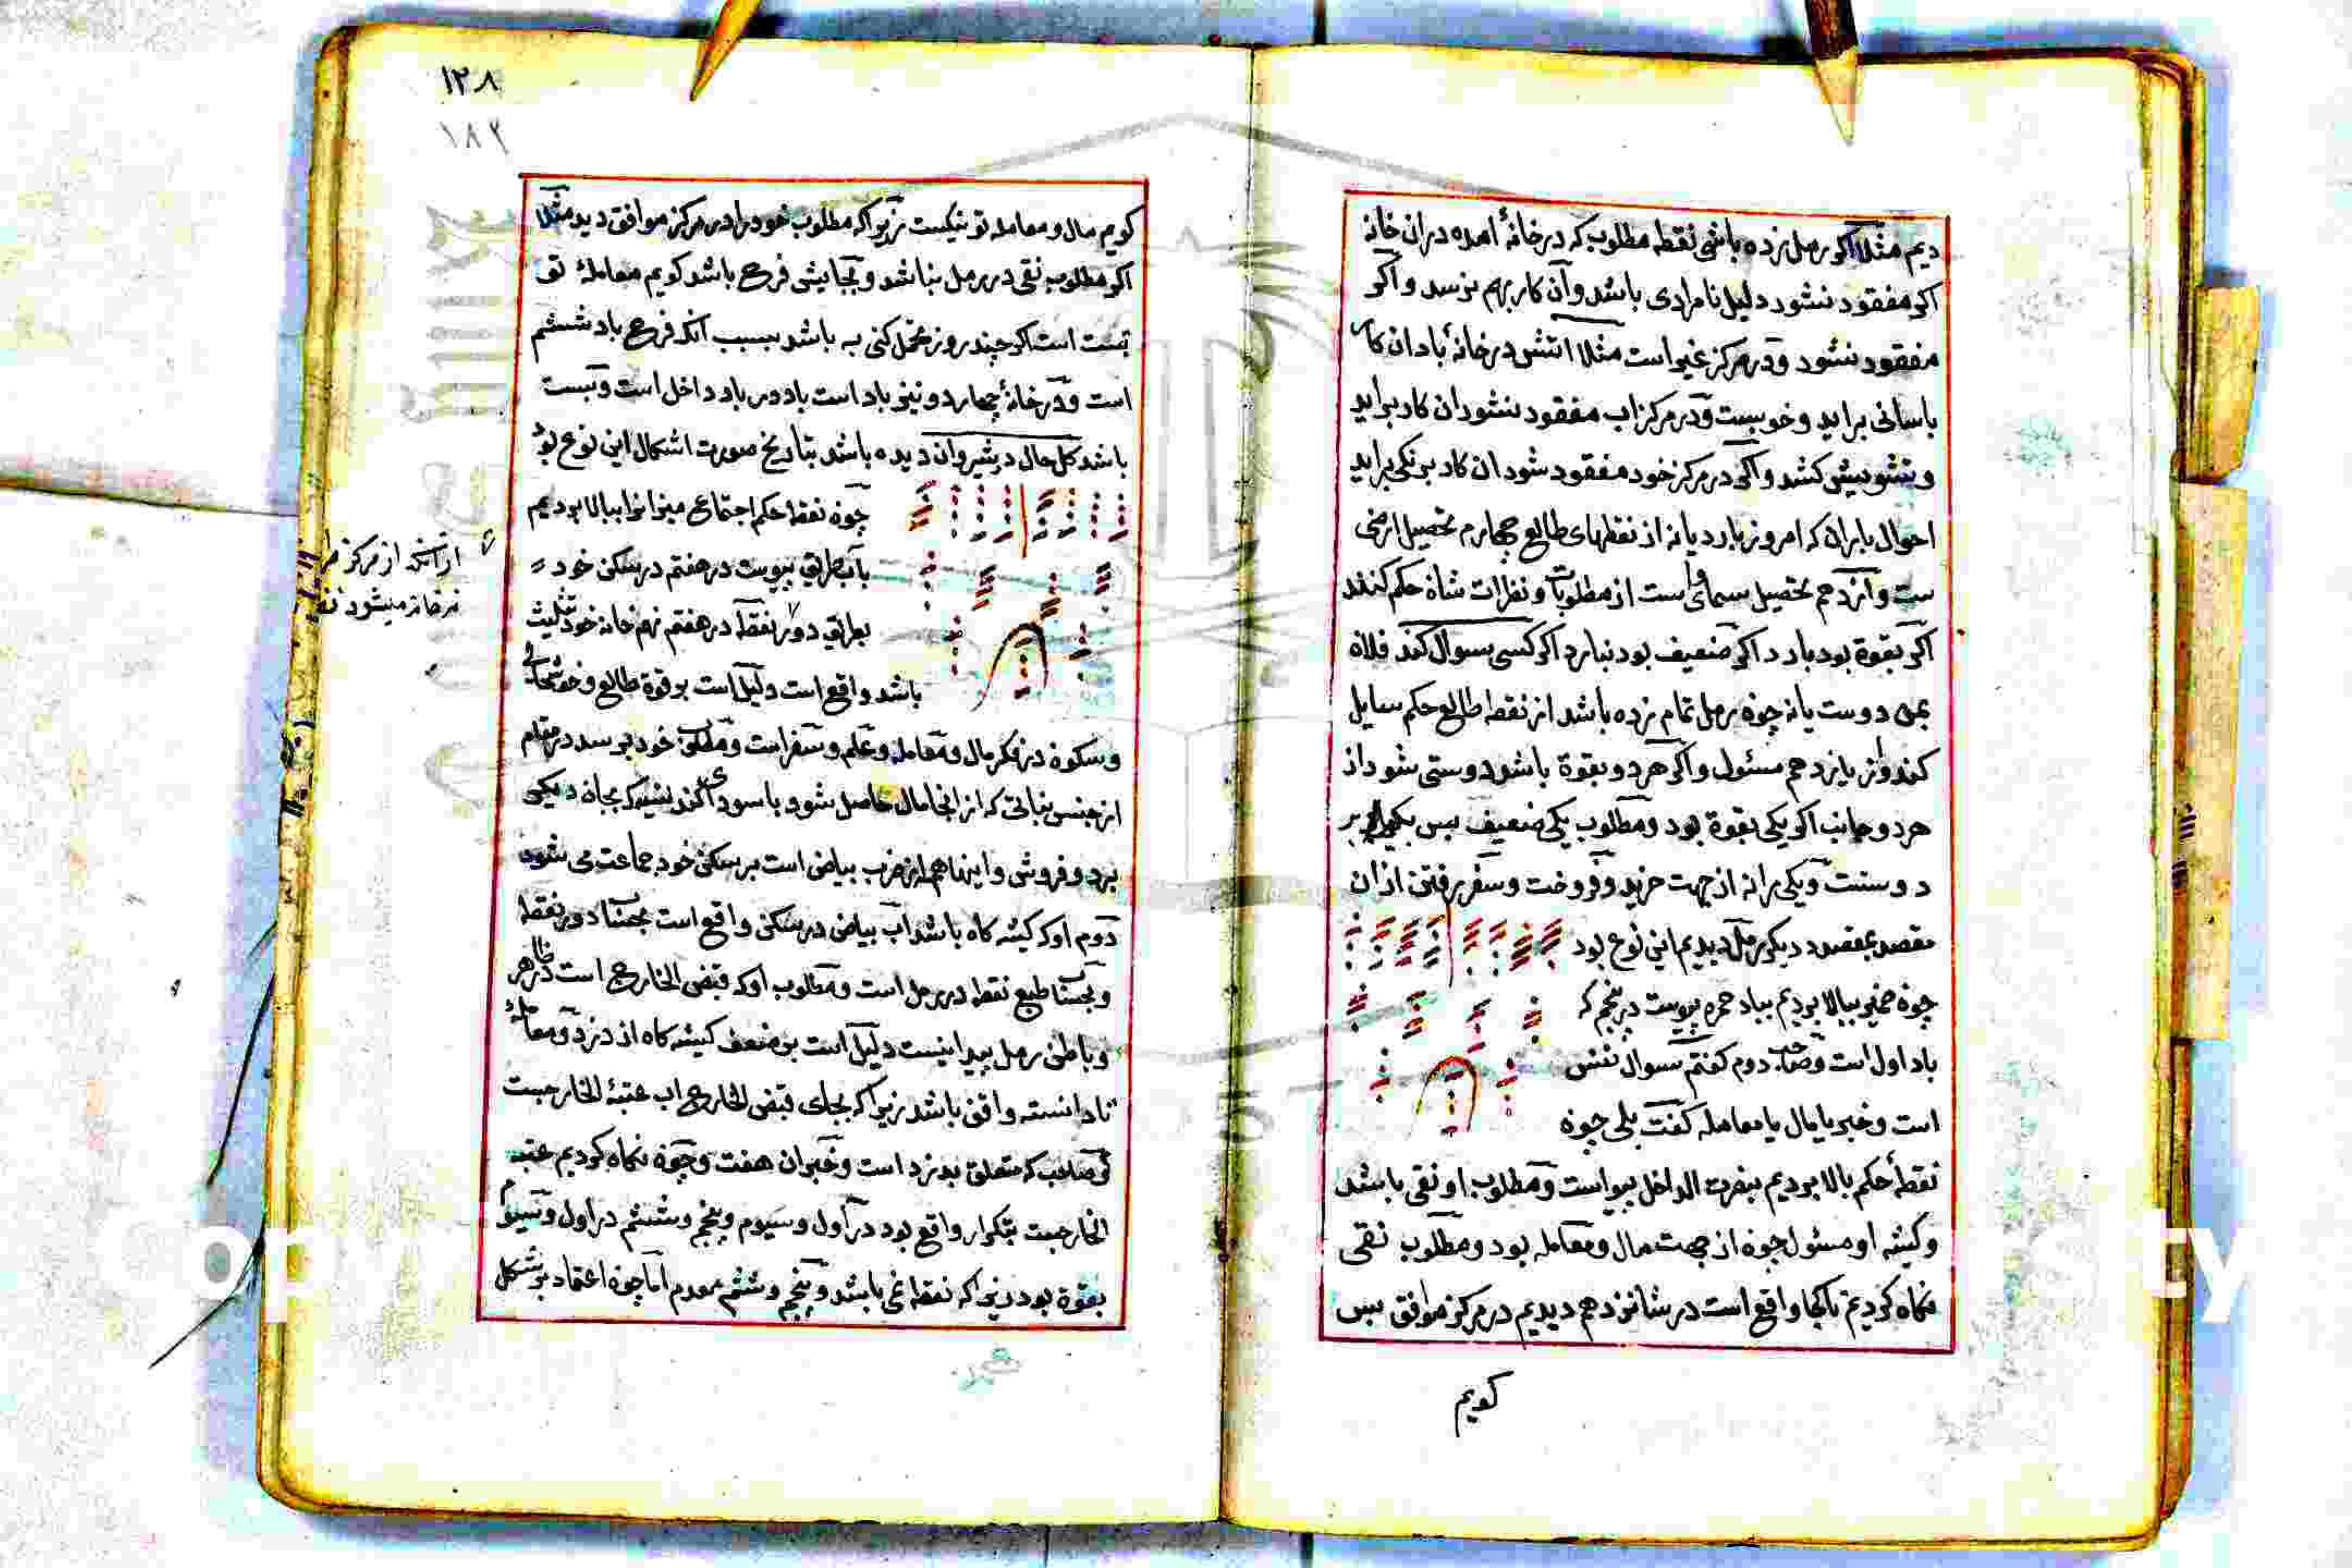 دیم مثلا اکر رمل زده باشی نقطه مطلوب که در خانهٔ امده در ان خانه
اکر مفقود نشود دلیل نامرادی باشد وآن کار بهم نرسد واکر
مفقود نشود ودر مرکز غیر است مثلا اتش در خانهٔ باد ان کار
باسانی براید وخوبست ودر مرکز اب مفقود نشود ان کار براید
وتشویش کشد واکر در مرکز خود مفقود شود ان کار بنیکی براید
احوال باران که امروز بارد یا نه از نقطهای طالع چهارم تحصیل ارضی
ست واز دهم تحصیل سماوی است از مطلوبات ونظرات شاه حکم کنند
اکر بقوة بود بارد اکر ضعیف بود نبارد اکر کسی سوال کند فلان
بمن دوست یا نه چون رمل تمام زده باشد از نقطه طالع حکم سایل
کند واز یازدهم مسئول واکر هر دو بقوة باشد دوستی شود از
هر دو جانب اکر یکی بقوة بود ومطلوب یکی ضعیف پس یکی را
دوستت ویکی را نه از جهت خرید وفروخت وسفر رفتن از ان
مقصد بمقصد دیکر رمل دیدیم این نوع بود
چون ضمیر ببالا بردیم بباد حمره پیوست در پنجم که
باد اول است وصاحب دوم کفتم سوال نفس
است وخبر یا مال یا معامله کفت بلی چون
نقطهٔ حکم بالا بردیم بنصرت الداخل پیوست ومطلوب او نقی باشد
وکیشه او مسئول چون از جهت مال ومعامله بود ومطلوب نقی
نکاه کردیم تا کجا واقع است در شانزدهم دیدیم در مرکز موافق پس
کویم
۱۲۸
۱۸۲
کویم مال ومعامله تو نیکست زیرا که مطلوب خود را در مرکز موافق دید مثلا
اکر مطلوب نقی در رمل نباشد وبجایش فرح باشد کویم معاملهٔ تو
بست است اکر چند روز تحمل کنی به باشد بسبب آنکه فرح باد ششم
است ودر خانهٔ چهاردو نیز باد است باد در باد داخل است وبست
باشد کل حال در شیروان دیده باشد بتاریخ صورت اشکال این نوع بود
چون نقطه حکم اجتماع میزانرا ببالا بردیم
بآب طریق پیوست در هفتم در سکن خود
بطریق دور نقطه در هفتم نهم خانه خود تثلیث
باشد واقع است دلیل است بر قوة طالع وخوشحالی
وسکون در فکر مال ومعامله وعلم وسفر است وملکی خود برسد در مقام
از جنس نباتی که از انجا مال حاصل شود یا سودا کند بجای دیکر
برد وفروشی واینها همه از ضرب بیاض است بر سکن خود جماعت می شود
دوم اوکه کیشه کاه باشد آب بیاض در سکن واقع است بحساب دور نقطه
وبحساب طبع نقطه در رمل است ومطلوب اوکه قبض الخارج است در ظاهر
وباطن رمل پیدا نیست دلیل است بر ضعف کیشه کاه از دزد ومعاملهٔ
نادانسته واقع باشد زیرا که بجای قبض الخارج اب عتبة الخارجست
کوصاحب که متعلق بدزد است وخبر ان هفت وچون نکاه کردیم عتبه
الخارجست بتکرار واقع بود در اول وسیوم وپنجم وششم در اول وسیوم
بقوة بود زیرا که نقطه غی باشد وپنجم وششم مردم اما چون اعتماد بر شکل
از آنکه از مرکز